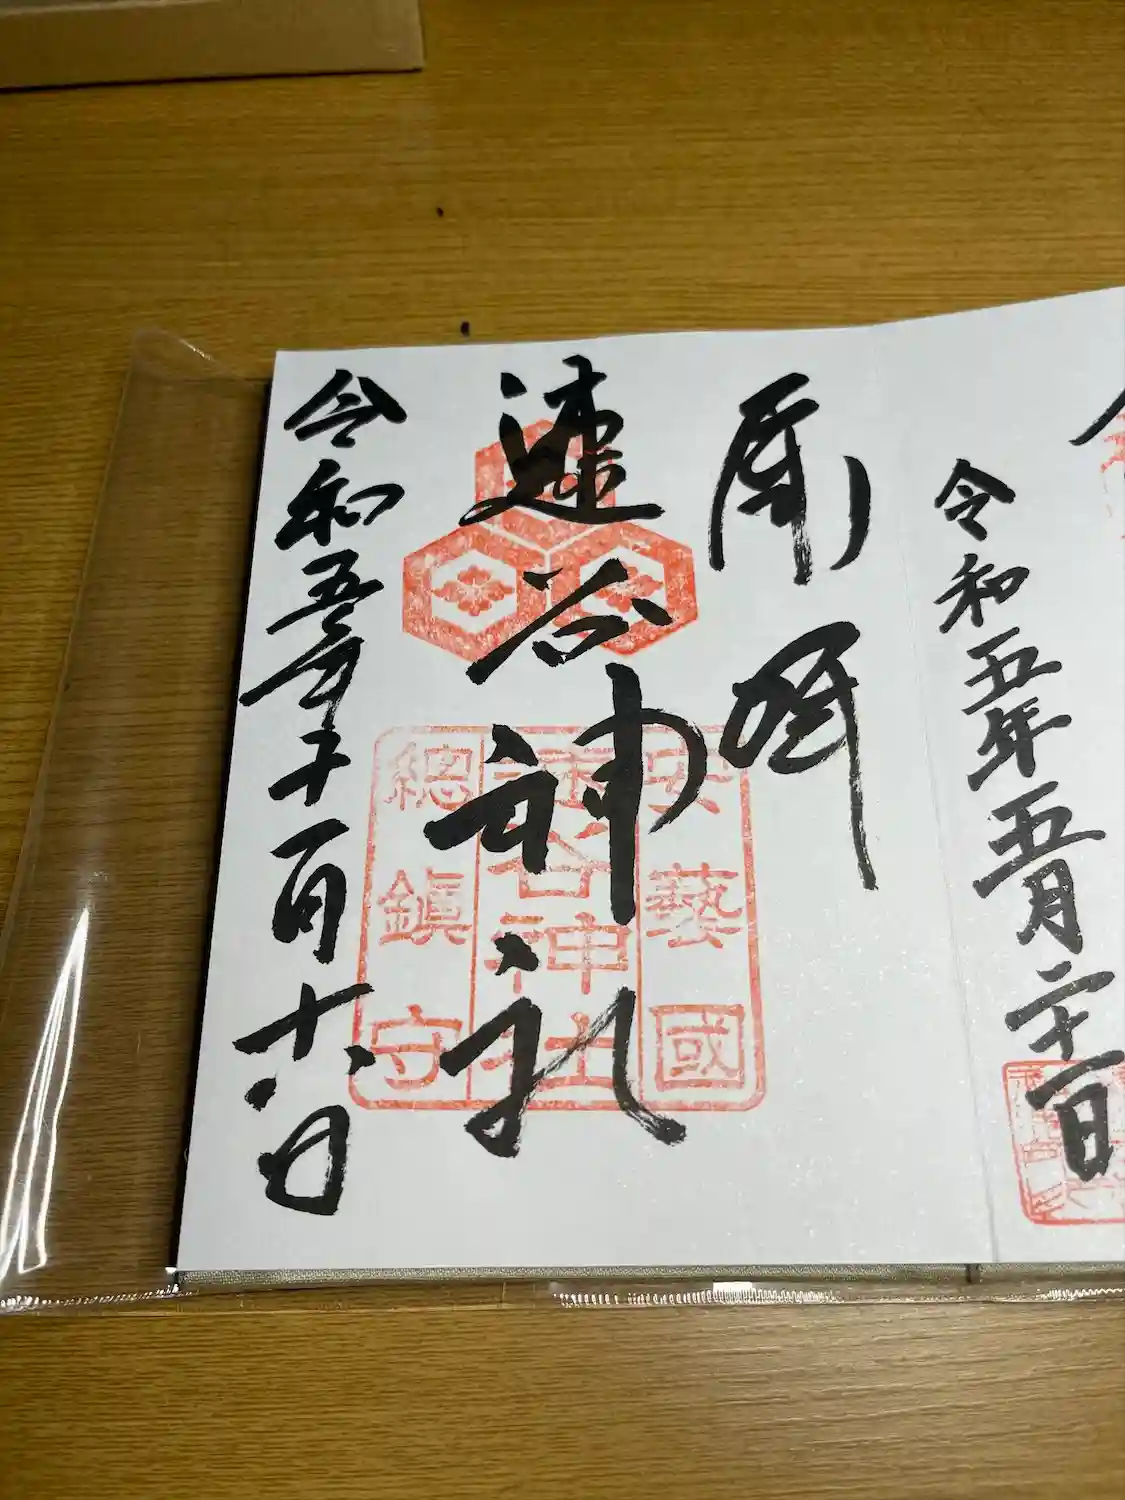 令和五年五月二十一日
速谷神社
安藝國
速谷神社
總鎮守
令和五年十一月十八日